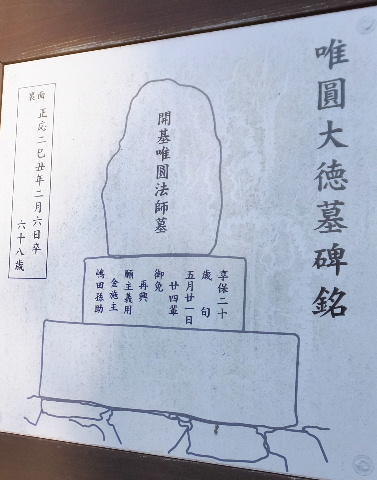 唯圓大徳墓碑銘
開基唯圓法師墓
享保二十
歳旬
五月廿一日
廿四輩
御免
再興
願主義用
金施主
嶋田孫助
裏面
正応二己丑年二月六日卒
六十八歳